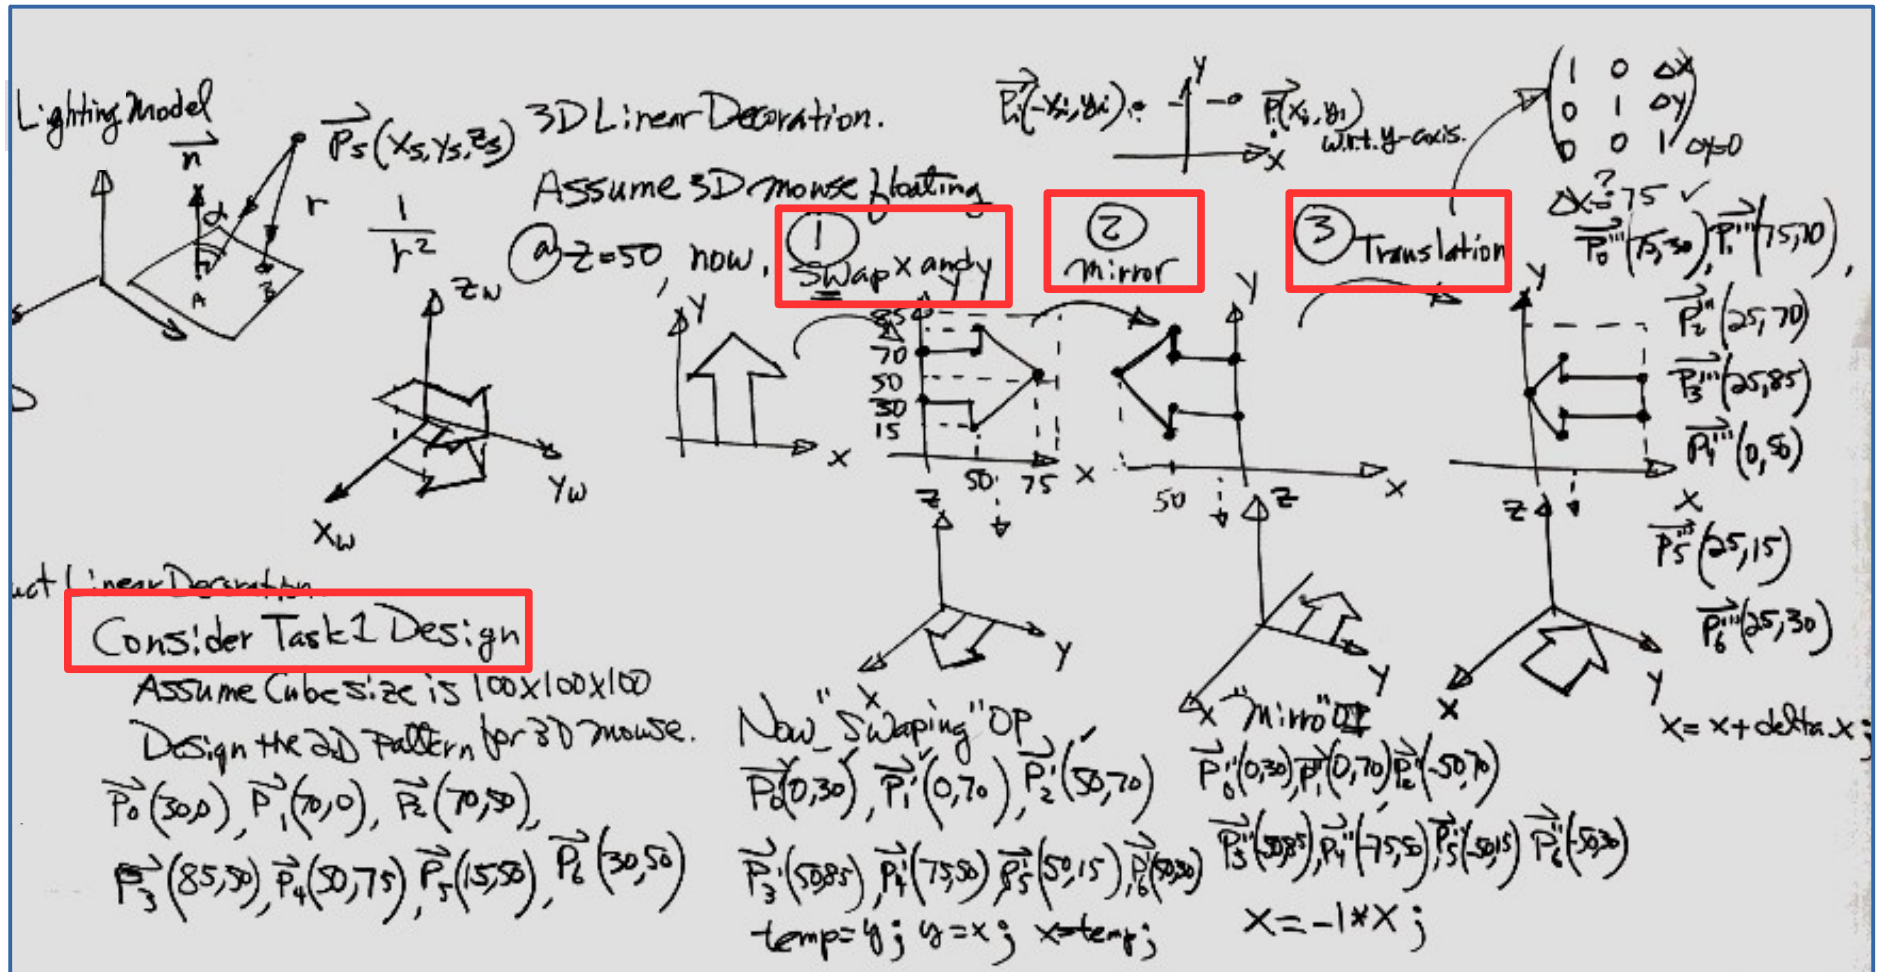 Lighting Model
n
P5(x5,y5,z5)
α
r
A
B
1
r²
3D Linear Decoration.
Assume 3D mouse floating
@ z=50, now,
1
Swap x and y
2
mirror
3 Translation
Pi(-xi,yi)
Y
P(xi,yi)
X
w.r.t. y-axis.
1 0 ΔX
0 1 ΔY
0 0 1
ΔY=0
ΔX=75 ✓
?
P0'''(75,30), P1'''(75,70),
P2'''(25,70)
P3'''(25,85)
P4'''(0,50)
P5'''(25,15)
P6'''(25,30)
x = x + delta.x;
Zw
Yw
Xw
Y
X
Y
85
70
50
30
15
50 75 X
Y
50
X
Y
X
Z
Y
X
Z
Y
X
Z
Y
X
uct Linear Decoration
Consider Task 1 Design
Assume Cube size is 100x100x100
Design the 2D pattern for 3D mouse.
P0(30,0), P1(70,0), P2(70,50),
P3(85,50), P4(50,75), P5(15,50), P6(30,50)
Now "Swaping" OP,
P0'(0,30), P1'(0,70), P2'(50,70)
P3'(50,85), P4'(75,50) P5'(50,15), P6'(50,30)
temp=y; y=x; x=temp;
"Mirro" OP
P0''(0,30), P1''(0,70) P2''(-50,70)
P3''(-50,85), P4''(-75,50), P5''(-50,15) P6''(-50,30)
X=-1*X;